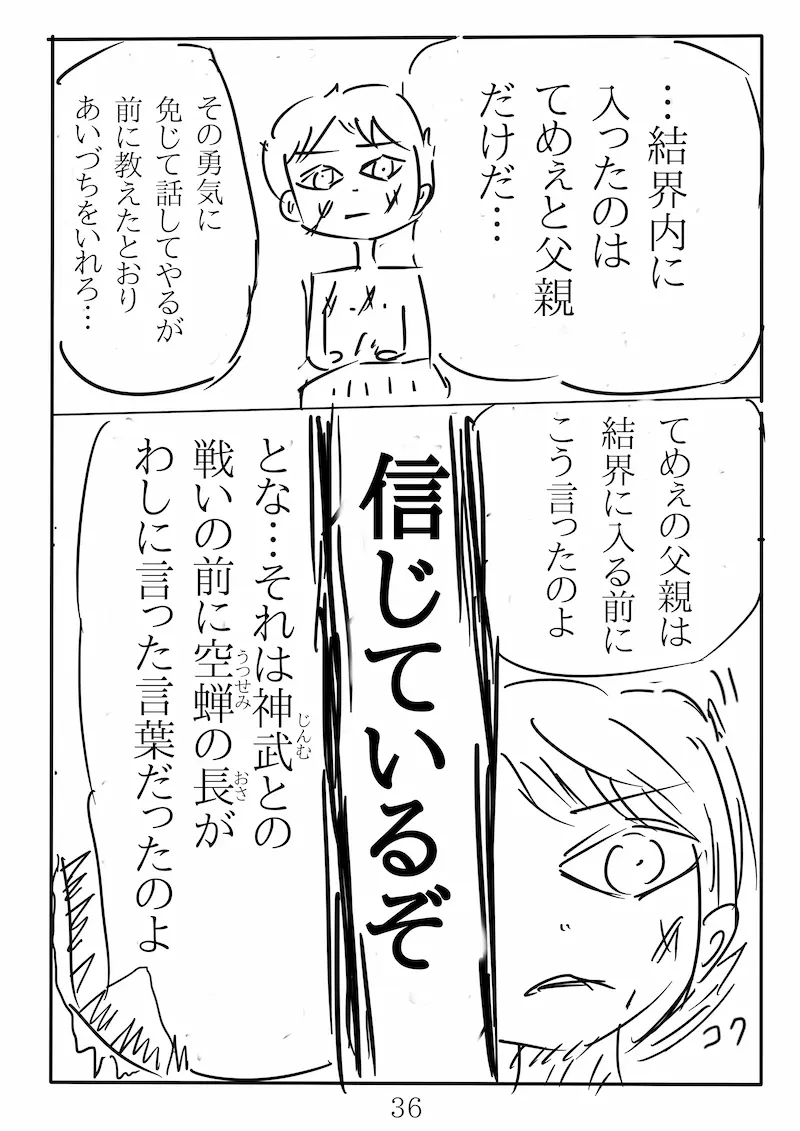 …結界内に
入ったのは
てめぇと父親
だけだ…
その勇気に
免じて話してやるが
前に教えたとおり
あいづちをいれろ…
てめぇの父親は
結界に入る前に
こう言ったのよ
コク
信じているぞ
とな…それは神武との
じんむ
戦いの前に空蝉の長が
うつせみ
おさ
わしに言った言葉だったのよ
36